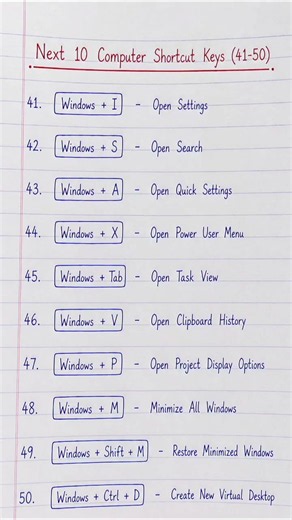 Next 10 Computer Shortcut Keys (41-50)
41. Windows + I - Open Settings
42. Windows + S - Open Search
43. Windows + A - Open Quick Settings
44. Windows + X - Open Power User Menu
45. Windows + Tab - Open Task View
46. Windows + V - Open Clipboard History
47. Windows + P - Open Project Display Options
48. Windows + M - Minimize All Windows
49. Windows + Shift + M - Restore Minimized Windows
50. Windows + Ctrl + D - Create New Virtual Desktop